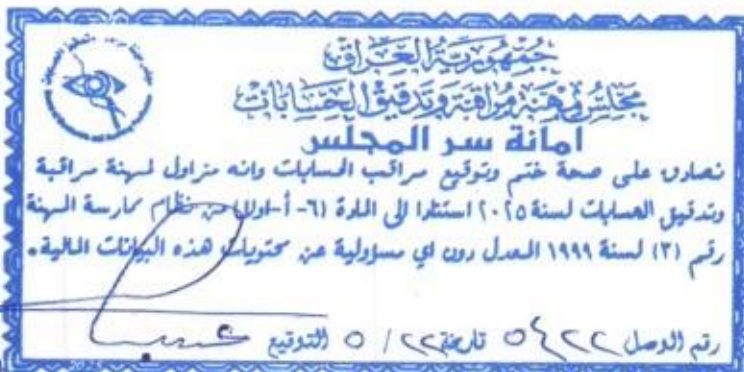 جمهورية العراق
مجلس مهنة مراقبة وتدقيق الحسابات
امانة سر المجلس
نصادق على صحة ختم وتوقيع مراقب الحسابات وانه مزاول لمهنة مراقبة
وتدقيق الحسابات لسنة ٢٠٢٥ استنادا الى المادة (٦- أ-اولا) من نظام ممارسة المهنة
رقم (٣) لسنة ١٩٩٩ المعدل دون اي مسؤولية عن محتويات هذه البيانات المالية.
رقم الوصل ٥٤٢٢ تاريخ ٢٢/ ٥ التوقيع